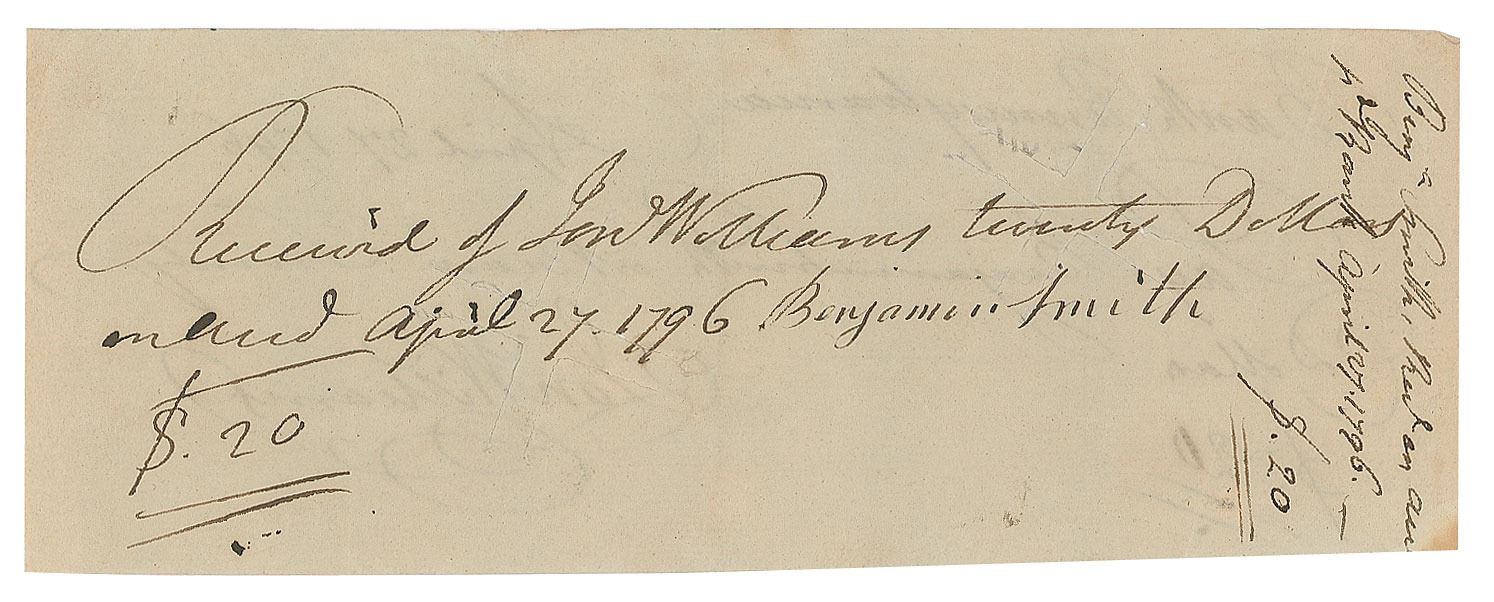 Receivd of Jon Williams twenty Dollars
on and April 27. 1796 Benjamin Smith
$. 20
Benjn Smith,
April 27. 1796.
$. 20